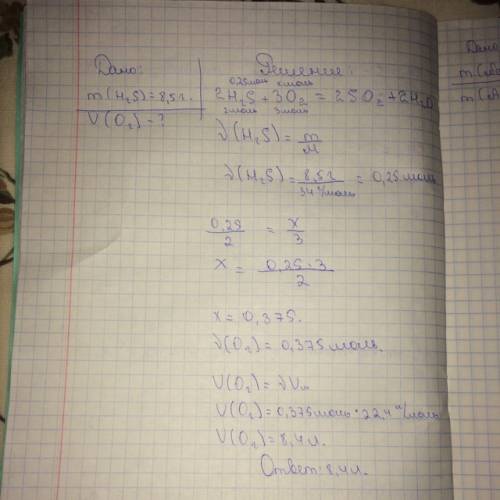 Дано:
m(H₂S)=8,5г.
V(O₂)=?
Решение:
0,25моль xмоль
2H₂S+3O₂=2SO₂+2H₂O
2моль 3моль
ν(H₂S)=m/M
ν(H₂S)=8,5г/34г/моль=0,25моль
0,25/2=x/3
x=0,25·3/2
x=0,375.
ν(O₂)=0,375моль.
V(O₂)=νVₘ
V(O₂)=0,375моль·22,4л/моль
V(O₂)=8,4л.
Ответ:8,4л.
Дано
m(
m(